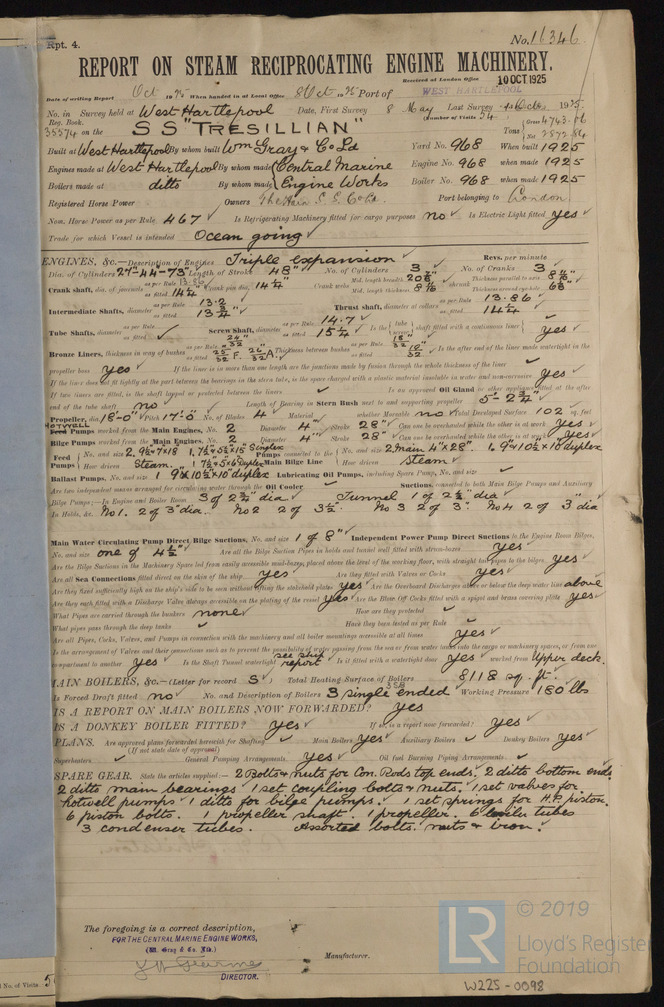 Rpt. 4.
No. 11346
REPORT ON STEAM RECIPROCATING ENGINE MACHINERY.
Received at London Office 10 OCT 1925
Date of writing Report Oct 1925 When handed in at Local Office 8 Oct 1925 Port of WEST HARTLEPOOL
No. in Survey held at West Hartlepool Date, First Survey 8 May Last Survey Octr 1925
Reg. Book. (Number of Visits 54)
35574 on the S S "TRESILLIAN" Tons { Gross 4743.06 Net 2872.84
Built at West Hartlepool By whom built Wm Gray & Co Ld Yard No. 968 When built 1925
Engines made at West Hartlepool By whom made Central Marine Engine No. 968 when made 1925
Boilers made at ditto By whom made Engine Works Boiler No. 968 when made 1925
Registered Horse Power Owners The Hain S. S. Co Ld. Port belonging to London
Nom. Horse Power as per Rule 467 Is Refrigerating Machinery fitted for cargo purposes no Is Electric Light fitted yes
Trade for which Vessel is intended Ocean going
ENGINES, &c.—Description of Engines Triple expansion Revs. per minute
Dia. of Cylinders 27"-44"-73" Length of Stroke 48" No. of Cylinders 3 No. of Cranks 3
Crank shaft, dia. of journals as per Rule 13.86 as fitted 14¼" Crank pin dia. 14¼" Crank webs Mid. length breadth 20⅝" Mid. length thickness 8⅞" shrunk Thickness parallel to axis 8⅞" Thickness around eye-hole 6⅝"
Intermediate Shafts, diameter as per Rule 13.2 as fitted 13¾" Thrust shaft, diameter at collars as per Rule 13.86 as fitted 14¼"
Tube Shafts, diameter as per Rule as fitted Screw Shaft, diameter as per Rule 14.7 as fitted 15¼" Is the { tube screw } shaft fitted with a continuous liner { yes
Bronze Liners, thickness in way of bushes as per Rule 24/32" as fitted 25/32 F. 26/32 A Thickness between bushes as per Rule 18/32 as fitted Is the after end of the liner made watertight in the
propeller boss yes If the liner is in more than one length are the junctions made by fusion through the whole thickness of the liner
If the liner does not fit tightly at the part between the bearings in the stern tube, is the space charged with a plastic material insoluble in water and non-corrosive yes
If two liners are fitted, is the shaft lapped or protected between the liners Is an approved Oil Gland or other appliance fitted at the after
end of the tube shaft no Length of Bearing in Stern Bush next to and supporting propeller 5'-2¾"
Propeller, dia. 18'-0" Pitch 17'-0" No. of Blades 4 Material whether Moveable no Total Developed Surface 102 sq. feet
HOTWELL
Feed Pumps worked from the Main Engines, No. 2 Diameter 4" Stroke 28" Can one be overhauled while the other is at work yes
Bilge Pumps worked from the Main Engines, No. 2 Diameter 4" Stroke 28" Can one be overhauled while the other is at work yes
Feed Pumps { No. and size 2, 9½"x7"x18" 1, 7½"x5½"x15" Simplex Pumps connected to the Main Bilge Line { No. and size 2 Main 4"x28" 1, 9"x10½"x10" duplex
How driven Steam. 1 7½"x5"x6" Duplex How driven Steam
Ballast Pumps, No. and size 1 9"x10½"x10" duplex Lubricating Oil Pumps, including Spare Pump, No. and size
Are two independent means arranged for circulating water through the Oil Cooler Suctions, connected to both Main Bilge Pumps and Auxiliary
Bilge Pumps;—In Engine and Boiler Room 3 of 2½" dia Tunnel 1 of 2½" dia
In Holds, &c. No 1. 2 of 3" dia. No 2 2 of 3½" No 3 2 of 3" No 4 2 of 3" dia
Main Water Circulating Pump Direct Bilge Suctions, No. and size 1 of 8" Independent Power Pump Direct Suctions to the Engine Room Bilges,
No. and size one of 4½" Are all the Bilge Suction Pipes in holds and tunnel well fitted with strum-boxes yes
Are the Bilge Suctions in the Machinery Space led from easily accessible mud-boxes, placed above the level of the working floor, with straight tail pipes to the bilges yes
Are all Sea Connections fitted direct on the skin of the ship yes Are they fitted with Valves or Cocks yes
Are they fixed sufficiently high on the ship's side to be seen without lifting the stokehold plates yes Are the Overboard Discharges above or below the deep water line above
Are they each fitted with a Discharge Valve always accessible on the plating of the vessel yes Are the Blow Off Cocks fitted with a spigot and brass covering plate yes
What Pipes are carried through the bunkers none How are they protected
What pipes pass through the deep tanks Have they been tested as per Rule
Are all Pipes, Cocks, Valves, and Pumps in connection with the machinery and all boiler mountings accessible at all times yes
Is the arrangement of Valves and their connections such as to prevent the possibility of water passing from the sea or from water tanks into the cargo or machinery spaces, or from one
compartment to another yes Is the Shaft Tunnel watertight see ship report Is it fitted with a watertight door yes worked from Upper deck.
MAIN BOILERS, &c.—(Letter for record S) Total Heating Surface of Boilers 8118 sq. ft.
Is Forced Draft fitted no No. and Description of Boilers 3 single ended Working Pressure 180 lbs
IS A REPORT ON MAIN BOILERS NOW FORWARDED? yes
IS A DONKEY BOILER FITTED? yes If so, is a report now forwarded? yes
PLANS. Are approved plans forwarded herewith for Shafting Main Boilers yes Auxiliary Boilers Donkey Boilers yes
(If not state date of approval)
Superheaters General Pumping Arrangements yes Oil fuel Burning Piping Arrangements
SPARE GEAR. State the articles supplied:— 2 Bolts & nuts for Con. Rods top ends. 2 ditto bottom ends
2 ditto main bearings 1 set coupling bolts & nuts. 1 set valves for
hotwell pumps 1 ditto for bilge pumps. 1 set springs for H.P. piston.
6 piston bolts. 1 propeller shaft. 1 propeller. 6 boiler tubes
3 condenser tubes. Assorted bolts. nuts & iron.
The foregoing is a correct description,
FOR THE CENTRAL MARINE ENGINE WORKS,
(Wm. Gray & Co. Ltd.)
Manufacturer.
DIRECTOR.
No. of Visits 5
LR
© 2019
Lloyd's Register
Foundation
W225-0098